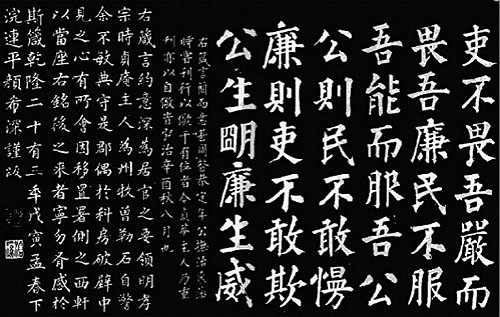 吏不畏吾嚴而
畏吾廉民不服
吾能而服吾公
公則民不敢慢
廉則吏不敢欺
公生明廉生威
右箴言簡而意盡恭定年公撫治
時嘗刊行以儆于有位者今貞菴主人乃重
刊亦以自儆弘治辛酉秋八月也
右箴言約意深為居官之要領明孝
宗時貞庵主人為州牧曾勒石自警
余不敏典守是郡偶於科房破壁中
見之心有所會因移置署側之西軒
以當座右銘後之來者寧勿齊感於
斯箴乾隆二十有三年戊寅孟春下
浣連平顏希深謹跋